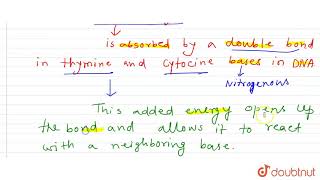 is absorbed by a double bond
in thymine and cytocine bases in DNA
Nitrogenous
This added energy opens up
the bond and allows it to react
with a neighboring base.
doubtnut